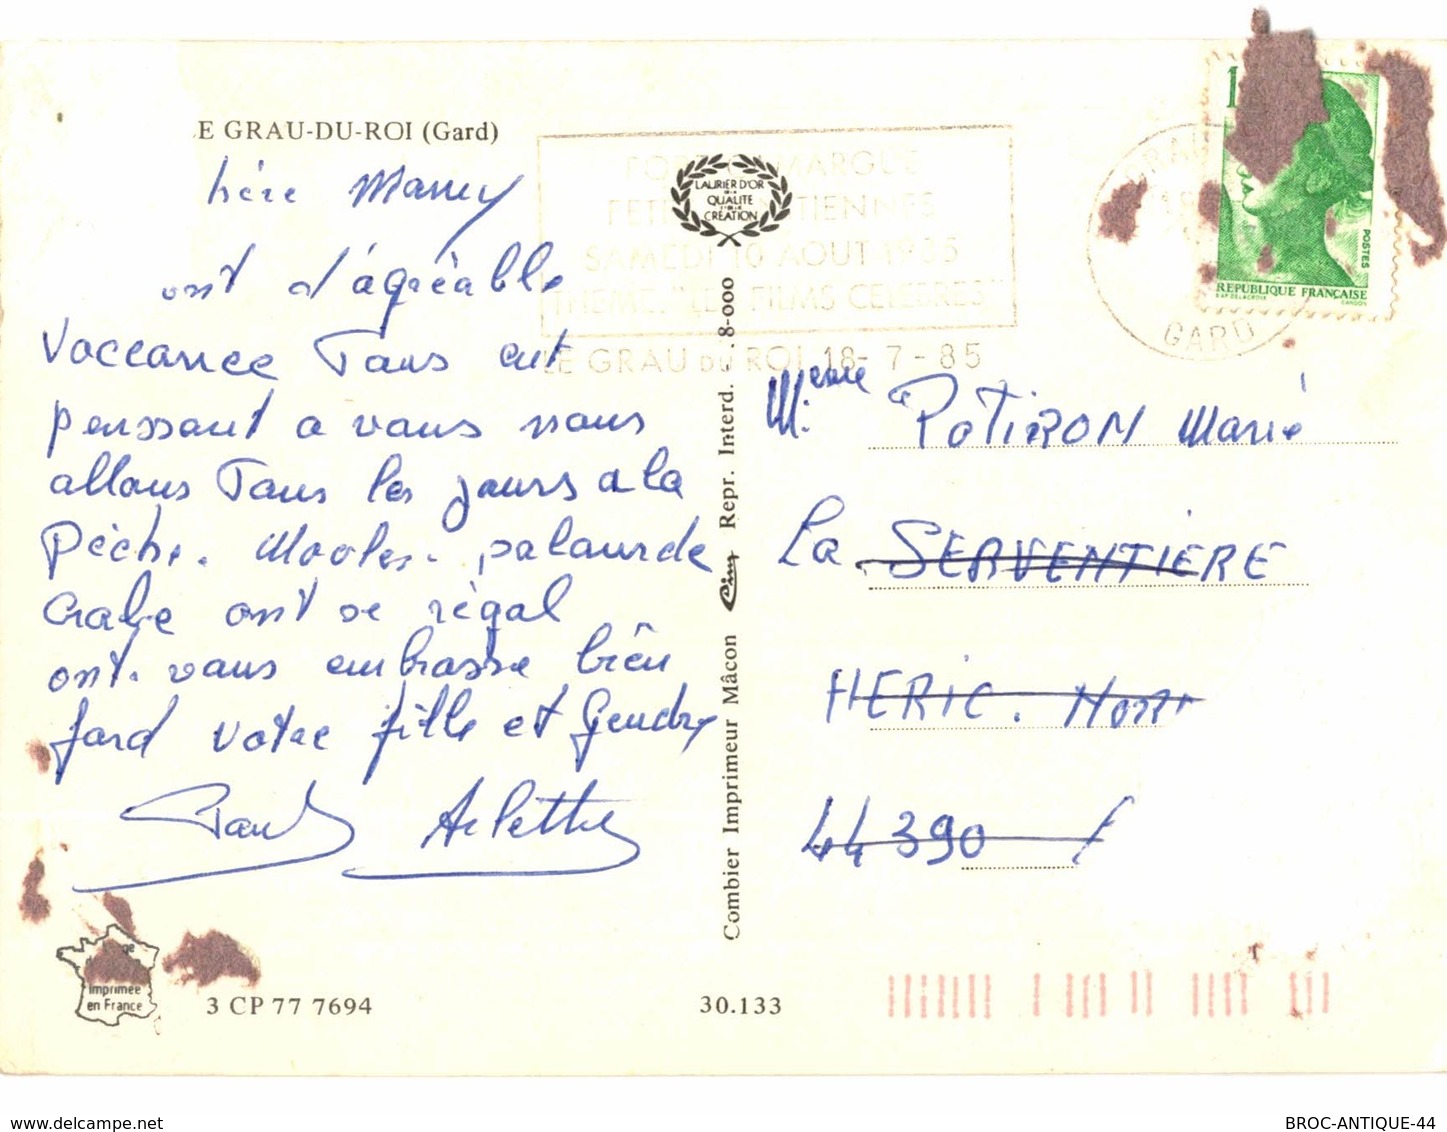 LE GRAU-DU-ROI (Gard)
hère Mamy
ont d'agréable
Vaccance Tous ent
penssant a vous nous
allons Tous les jours a la
pèche. Moules. palourde
Crabe ont se régal
ont. vous embrasse bien
ford votre fille et Gendre
Paul Arlette
Imprimée
en France
3 CP 77 7694
30.133
Combier Imprimeur Mâcon Cim Repr. Interd. 8-000
LAURIER D'OR
DE LA
QUALITE
CREATION
PORT CAMARGUE
FETES VENITIENNES
SAMEDI 10 AOUT 1985
THEME: "LES FILMS CELEBRES"
LE GRAU DU ROI 18-7-85
GRAU
GARD
1
POSTES
REPUBLIQUE FRANÇAISE
D'AP. DELACROIX GANDON
Mme POTIRON Marie
La SERVENTIÈRE
HERIC.
44390
www.delcampe.net
BROC-ANTIQUE-44